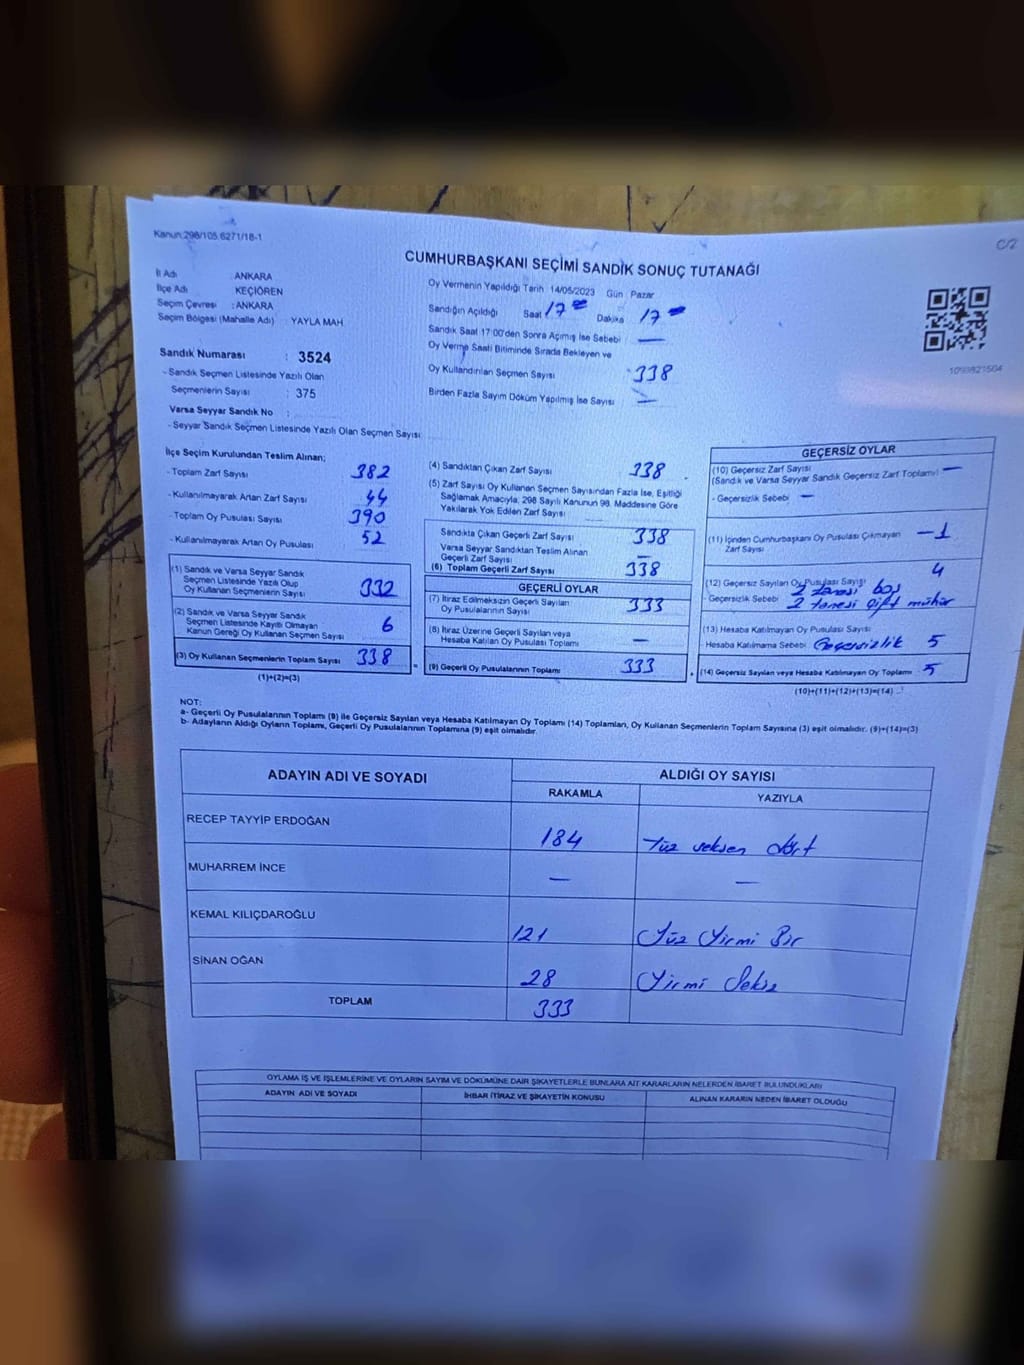 Kanun:298/105.6271/18-1
C/2
CUMHURBAŞKANI SEÇİMİ SANDIK SONUÇ TUTANAĞI
İl Adı : ANKARA
İlçe Adı : KEÇİÖREN
Seçim Çevresi : ANKARA
Seçim Bölgesi (Mahalle Adı) : YAYLA MAH
Sandık Numarası : 3524
- Sandık Seçmen Listesinde Yazılı Olan
Seçmenlerin Sayısı : 375
Varsa Seyyar Sandık No :
- Seyyar Sandık Seçmen Listesinde Yazılı Olan Seçmen Sayısı
Oy Vermenin Yapıldığı Tarih 14/05/2023 Gün : Pazar
Sandığın Açıldığı Saat 17 Dakika 17
Sandık Saat 17:00'den Sonra Açılmış İse Sebebi : —
Oy Verme Saati Bitiminde Sırada Bekleyen ve
Oy Kullandırılan Seçmen Sayısı : 338
Birden Fazla Sayım Döküm Yapılmış İse Sayısı : —
1099821504
İlçe Seçim Kurulundan Teslim Alınan;
- Toplam Zarf Sayısı 382
- Kullanılmayarak Artan Zarf Sayısı 44
- Toplam Oy Pusulası Sayısı 390
- Kullanılmayarak Artan Oy Pusulası 52
(1) Sandık ve Varsa Seyyar Sandık
Seçmen Listesinde Yazılı Olup
Oy Kullanan Seçmenlerin Sayısı 332
(2) Sandık ve Varsa Seyyar Sandık
Seçmen Listesinde Kayıtlı Olmayan
Kanun Gereği Oy Kullanan Seçmen Sayısı 6
(3) Oy Kullanan Seçmenlerin Toplam Sayısı 338
(1)+(2)=(3)
(4) Sandıktan Çıkan Zarf Sayısı 338
(5) Zarf Sayısı Oy Kullanan Seçmen Sayısından Fazla İse, Eşitliği
Sağlamak Amacıyla, 298 Sayılı Kanunun 98. Maddesine Göre
Yakılarak Yok Edilen Zarf Sayısı
Sandıkta Çıkan Geçerli Zarf Sayısı 338
Varsa Seyyar Sandıktan Teslim Alınan
Geçerli Zarf Sayısı —
(6) Toplam Geçerli Zarf Sayısı 338
GEÇERLİ OYLAR
(7) İtiraz Edilmeksizin Geçerli Sayılan
Oy Pusulalarının Sayısı 333
(8) İtiraz Üzerine Geçerli Sayılan veya
Hesaba Katılan Oy Pusulası Toplamı —
(9) Geçerli Oy Pusulalarının Toplamı 333
GEÇERSİZ OYLAR
(10) Geçersiz Zarf Sayısı
(Sandık ve Varsa Seyyar Sandık Geçersiz Zarf Toplamı) —
- Geçersizlik Sebebi —
(11) İçinden Cumhurbaşkanı Oy Pusulası Çıkmayan
Zarf Sayısı -1
(12) Geçersiz Sayılan Oy Pusulası Sayısı 4
- Geçersizlik Sebebi 2 tanesi boş
2 tanesi çift mühür
(13) Hesaba Katılmayan Oy Pusulası Sayısı
Hesaba Katılmama Sebebi Geçersizlik 5
(14) Geçersiz Sayılan veya Hesaba Katılmayan Oy Toplamı 5
(10)+(11)+(12)+(13)=(14)
NOT:
a- Geçerli Oy Pusulalarının Toplamı (9) ile Geçersiz Sayılan veya Hesaba Katılmayan Oy Toplamı (14) Toplamları, Oy Kullanan Seçmenlerin Toplam Sayısına (3) eşit olmalıdır. (9)+(14)=(3)
b- Adayların Aldığı Oyların Toplamı, Geçerli Oy Pusulalarının Toplamına (9) eşit olmalıdır.
ADAYIN ADI VE SOYADI ALDIĞI OY SAYISI
RAKAMLA YAZIYLA
RECEP TAYYİP ERDOĞAN 184 Yüz seksen dört
MUHARREM İNCE — —
KEMAL KILIÇDAROĞLU 121 Yüz Yirmi Bir
SİNAN OĞAN 28 Yirmi Sekiz
TOPLAM 333
OYLAMA İŞ VE İŞLEMLERİNE VE OYLARIN SAYIM VE DÖKÜMÜNE DAİR ŞİKAYETLERLE BUNLARA AİT KARARLARIN NELERDEN İBARET BULUNDUKLARI
ADAYIN ADI VE SOYADI İHBAR İTİRAZ VE ŞİKAYETİN KONUSU ALINAN KARARIN NEDEN İBARET OLDUĞU